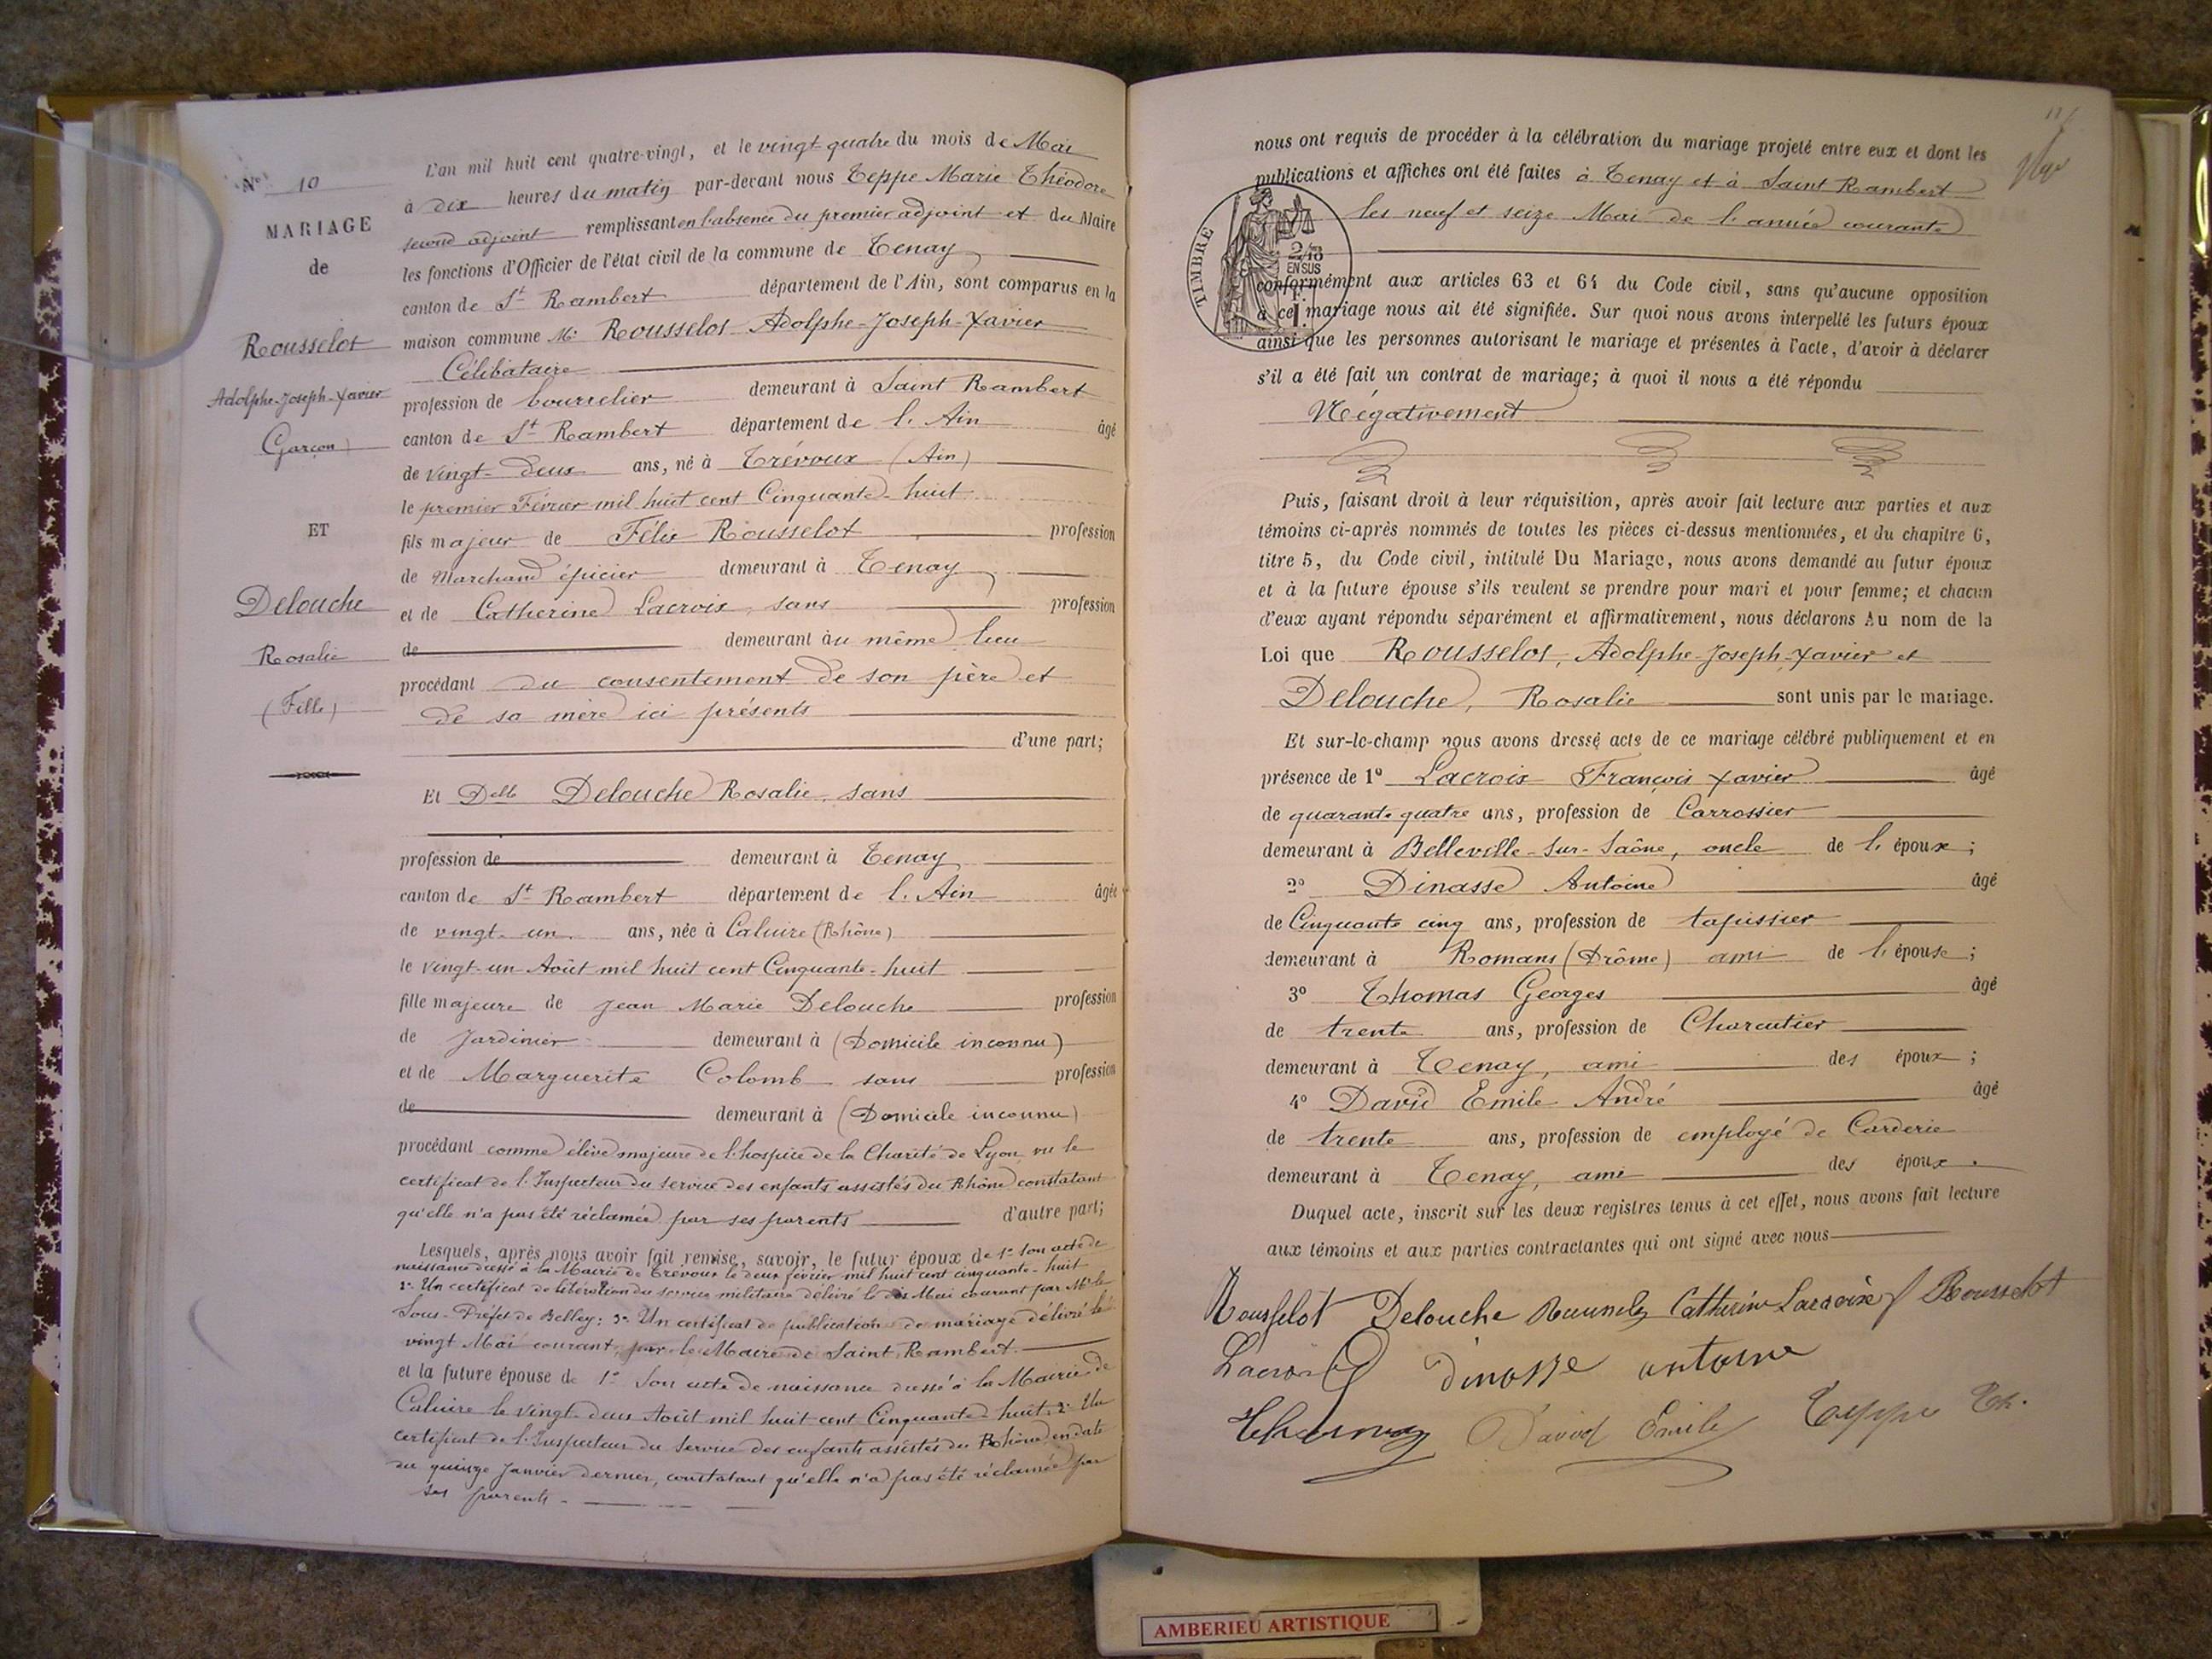 N° 10
MARIAGE
de
Rousselot
Adolphe-Joseph-Xavier
Garçon
ET
Delouche
Rosalie
(Fille)
L'an mil huit cent quatre-vingt, et le vingt-quatre du mois de Mai
à dix heures du matin par-devant nous Teppe Marie Théodore
second adjoint remplissant en l'absence du premier adjoint et du Maire
les fonctions d'Officier de l'état civil de la commune de Tenay
canton de St Rambert département de l'Ain, sont comparus en la
maison commune Mr Rousselot Adolphe-Joseph-Xavier
Célibataire
profession de bourrelier demeurant à Saint Rambert
canton de St Rambert département de l'Ain âgé
de vingt-deux ans, né à Trévoux (Ain)
le premier Février mil huit cent Cinquante-huit
fils majeur de Félix Rousselot profession
de Marchand épicier demeurant à Tenay
et de Catherine Lacroix, sans profession
de demeurant au même lieu
procédant du consentement de son père et
de sa mère ici présents
d'une part;
Et Delle Delouche Rosalie, sans
profession de demeurant à Tenay
canton de St Rambert département de l'Ain âgée
de vingt-un ans, née à Caluire (Rhône)
le vingt-un Août mil huit cent Cinquante-huit
fille majeure de Jean Marie Delouche profession
de Jardinier demeurant à (Domicile inconnu)
et de Marguerite Colomb sans profession
de demeurant à (Domicile inconnu)
procédant comme élève majeure de l'hospice de la Charité de Lyon, vu le
certificat de l'Inspecteur du service des enfants assistés du Rhône constatant
qu'elle n'a pas été réclamée par ses parents d'autre part;
Lesquels, après nous avoir fait remise, savoir, le futur époux de 1° Son acte de
naissance dressé à la Mairie de Trévoux le deux février mil huit cent cinquante-huit
2° Un certificat de libération du service militaire délivré le Mai courant par Mr le
Sous-Préfet de Belley: 3° Un certificat de publications de mariage délivré le
vingt Mai courant, par le Maire de Saint Rambert.
et la future épouse de 1° Son acte de naissance dressé à la Mairie de
Caluire le vingt-deux Août mil huit cent Cinquante-huit. 2° Un
certificat de l'Inspecteur du Service des enfants assistés du Rhône en date
du quinze Janvier dernier, constatant qu'elle n'a pas été réclamée par
ses parents.
nous ont requis de procéder à la célébration du mariage projeté entre eux et dont les
publications et affiches ont été faites à Tenay et à Saint Rambert
les neuf et seize Mai de l'année courante
TIMBRE
2/10
EN SUS
conformément aux articles 63 et 64 du Code civil, sans qu'aucune opposition
à ce mariage nous ait été signifiée. Sur quoi nous avons interpellé les futurs époux
ainsi que les personnes autorisant le mariage et présentes à l'acte, d'avoir à déclarer
s'il a été fait un contrat de mariage; à quoi il nous a été répondu
Négativement
Puis, faisant droit à leur réquisition, après avoir fait lecture aux parties et aux
témoins ci-après nommés de toutes les pièces ci-dessus mentionnées, et du chapitre 6,
titre 5, du Code civil, intitulé Du Mariage, nous avons demandé au futur époux
et à la future épouse s'ils veulent se prendre pour mari et pour femme; et chacun
d'eux ayant répondu séparément et affirmativement, nous déclarons Au nom de la
Loi que Rousselot, Adolphe-Joseph-Xavier et
Delouche, Rosalie sont unis par le mariage.
Et sur-le-champ nous avons dressé acte de ce mariage célébré publiquement et en
présence de 1° Lacroix François Xavier âgé
de quarante quatre ans, profession de Carrossier
demeurant à Belleville-sur-Saône, oncle de l'époux;
2° Dinasse Antoine âgé
de Cinquante cinq ans, profession de tapissier
demeurant à Romans (Drôme) ami de l'épouse;
3° Thomas Georges âgé
de trente ans, profession de Charcutier
demeurant à Tenay, ami des époux;
4° David Emile André âgé
de trente ans, profession de employé de Carderie
demeurant à Tenay, ami des époux.
Duquel acte, inscrit sur les deux registres tenus à cet effet, nous avons fait lecture
aux témoins et aux parties contractantes qui ont signé avec nous
Rousselot Delouche Catherine Lacroix f Rousselot
Lacroix dinasse antoine
Thomas David Emile Teppe Th.
AMBERIEU ARTISTIQUE